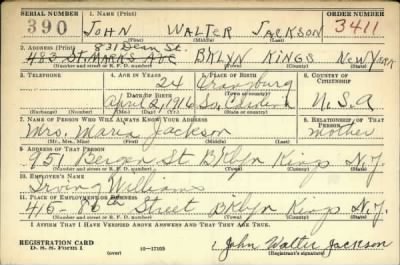 SERIAL NUMBER 1. NAME (Print) ORDER NUMBER
390 JOHN WALTER JACKSON 3411
2. ADDRESS (Print) 831 Dean St.
483 St MARKS AVE BKLYN KINGS NEW YORK
(Number and street or R. F. D. number) (Town) (County) (State)
3. TELEPHONE 4. AGE IN YEARS 5. PLACE OF BIRTH 6. COUNTRY OF CITIZENSHIP
24 Orangburg
DATE OF BIRTH (Town or county)
April 2, 1916 So. Carolina U.S.A
(Exchange) (Number) (Mo.) (Day) (Yr.) (State or country)
7. NAME OF PERSON WHO WILL ALWAYS KNOW YOUR ADDRESS 8. RELATIONSHIP OF THAT PERSON
Mrs. Maria Jackson mother
(Mr., Mrs., Miss) (First) (Middle) (Last)
9. ADDRESS OF THAT PERSON
951 Bergen St Bklyn Kings N.Y.
(Number and street or R. F. D. number) (Town) (County) (State)
10. EMPLOYER'S NAME
Irving Williams
11. PLACE OF EMPLOYMENT OR BUSINESS
415- 86th Street Bklyn Kings N.Y.
(Number and street or R. F. D. number) (Town) (County) (State)
I AFFIRM THAT I HAVE VERIFIED ABOVE ANSWERS AND THAT THEY ARE TRUE.
REGISTRATION CARD
D. S. S. Form 1 (over) 16—17105 John Walter Jackson
(Registrant's signature)